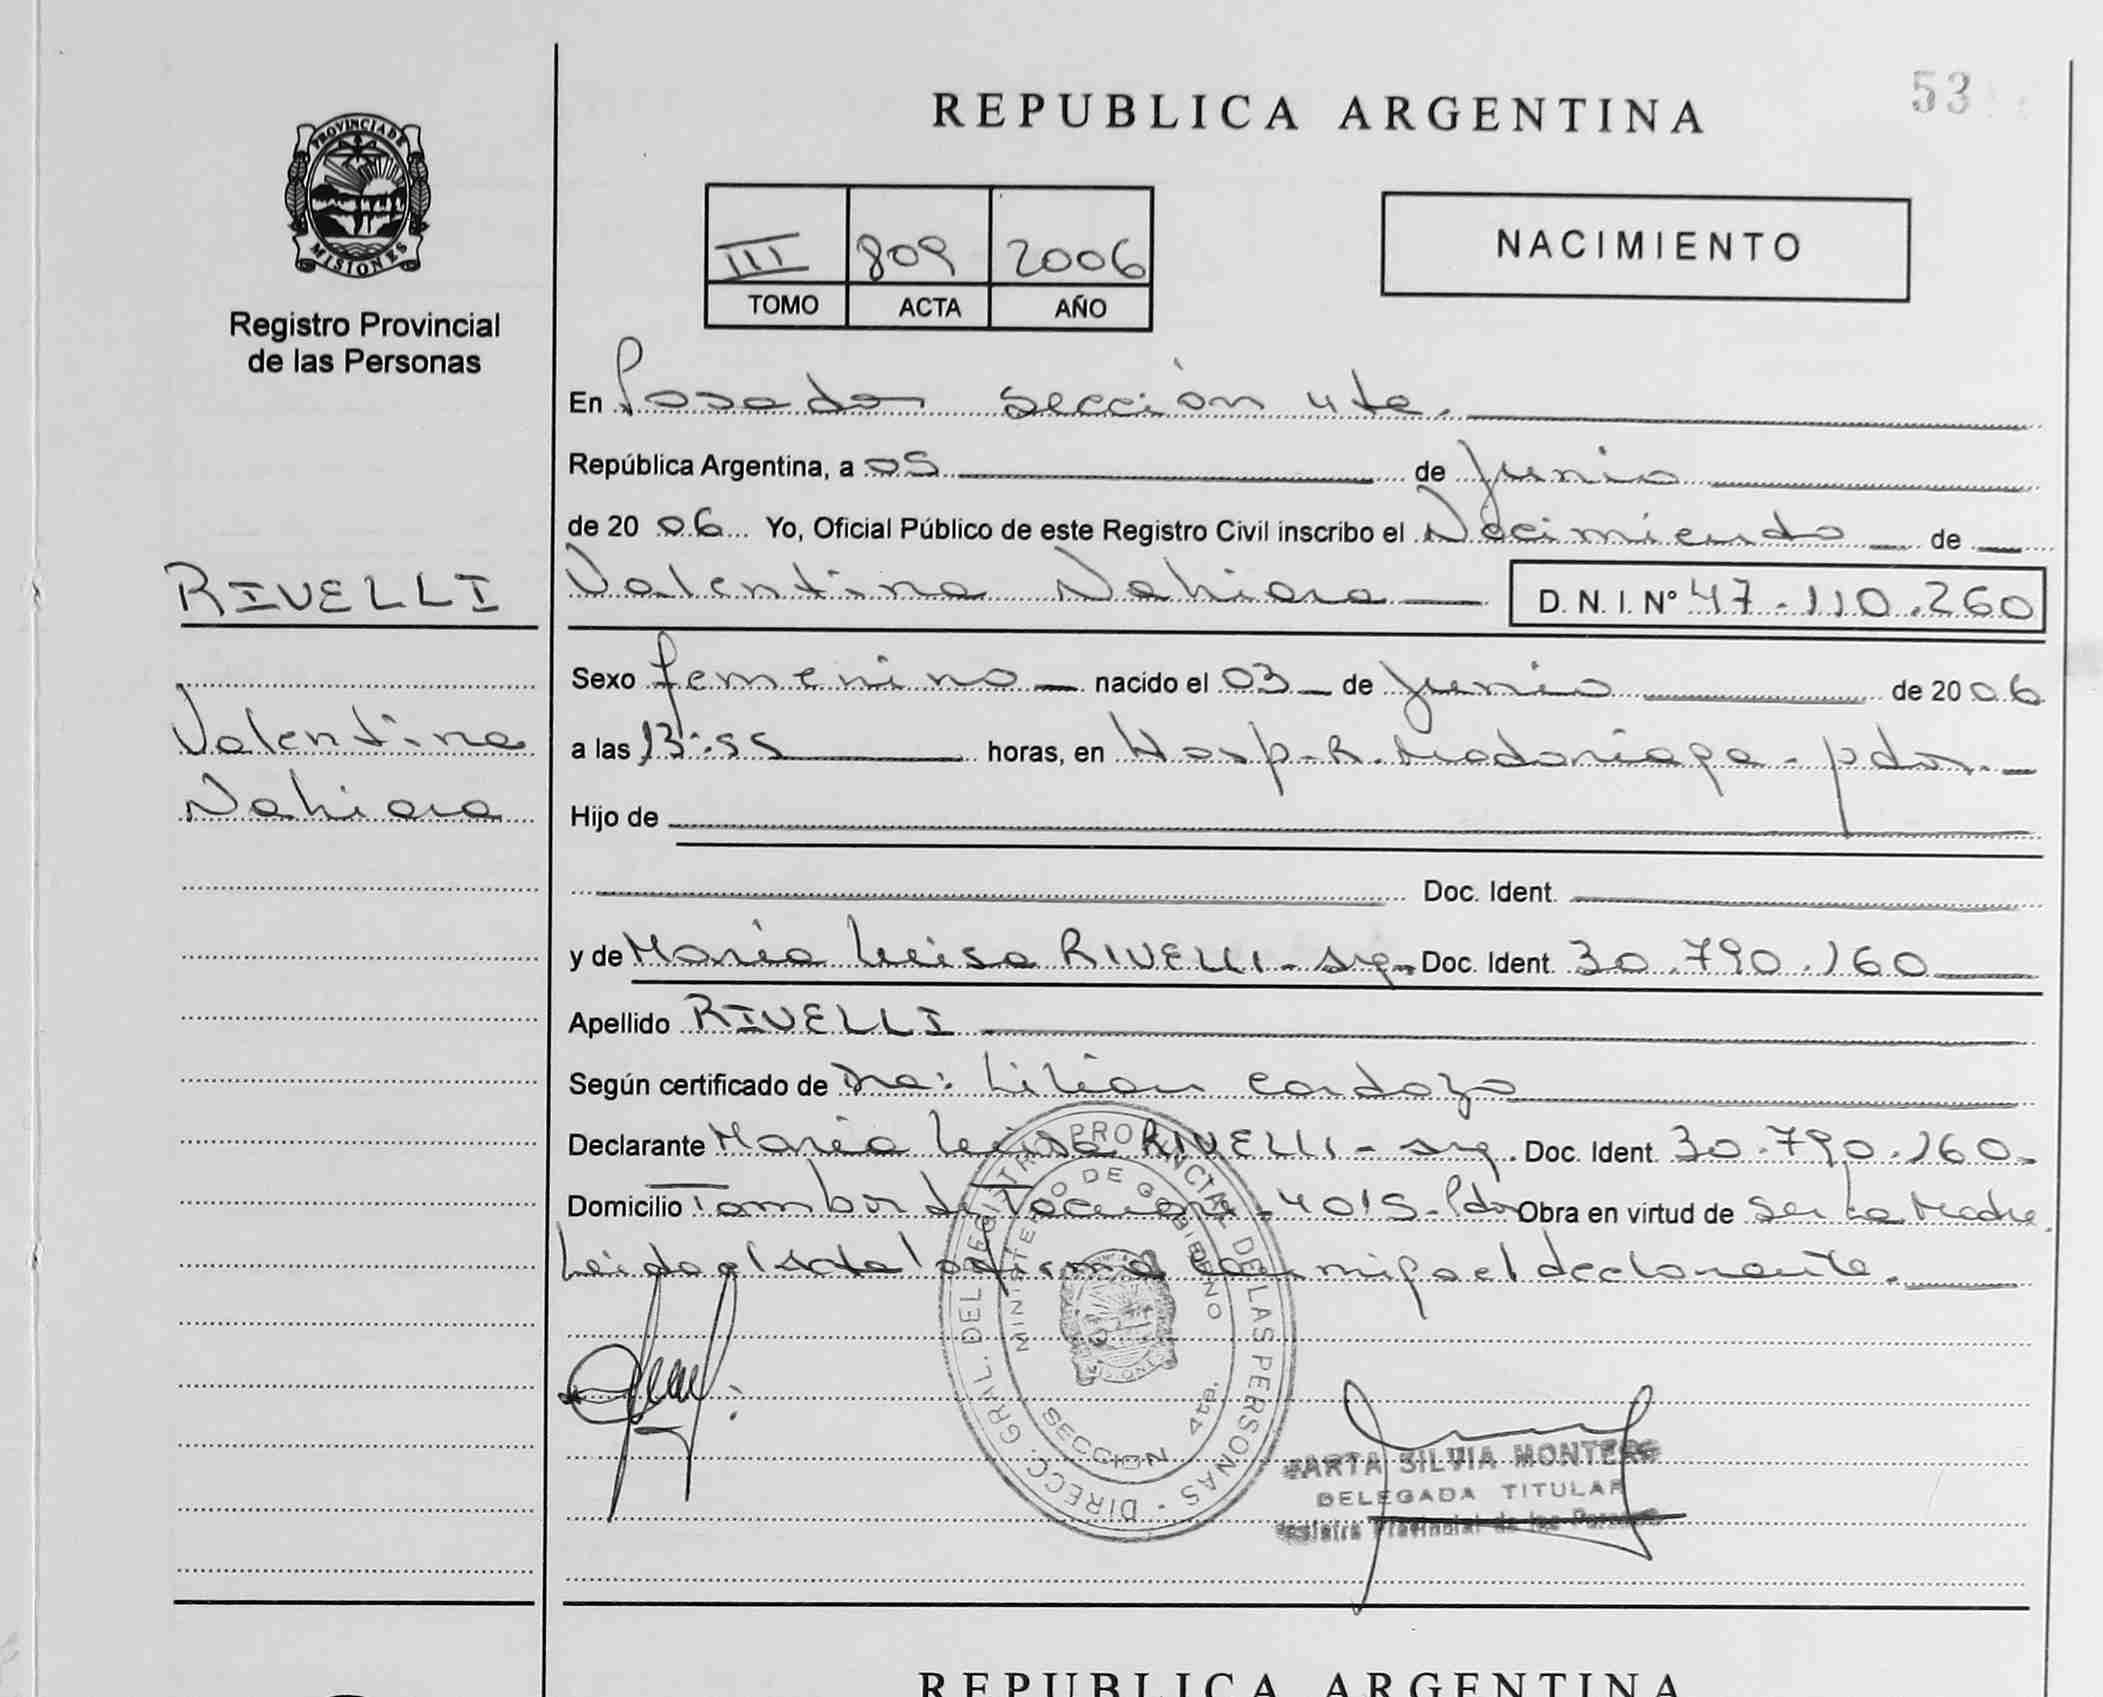 53
REPUBLICA ARGENTINA
PROVINCIA DE
MISIONES
Registro Provincial
de las Personas
III 809 2006
TOMO ACTA AÑO
NACIMIENTO
En Posadas sección 4ta.
República Argentina, a 05 de Junio
de 20 06 Yo, Oficial Público de este Registro Civil inscribo el Nacimiento de
RIVELLI
Valentina Nahiara D. N. I. Nº 47.110.260
Sexo femenino nacido el 03 de Junio de 20 06
Valentina
a las 13:55 horas, en Hosp. R. Madariaga - pdas.
Nahiara
Hijo de
Doc. Ident.
y de María Luisa RIVELLI - arg. Doc. Ident. 30.790.160
Apellido RIVELLI
Según certificado de Dra: Lilian Cardozo
Declarante María Luisa RIVELLI - arg. Doc. Ident. 30.790.160.
Domicilio Tambor de Tacuarí - 4015 - Pdas Obra en virtud de ser la Madre.
Leida el Acta la firma conmigo el declarante.
DIRECC. GRAL. DEL REGISTRO PROVINCIAL DE LAS PERSONAS
MINISTERIO DE GOBIERNO
SECCION 4ta.
MARTA SILVIA MONTERO
DELEGADA TITULAR
Registro Provincial de las Personas
REPUBLICA ARGENTINA